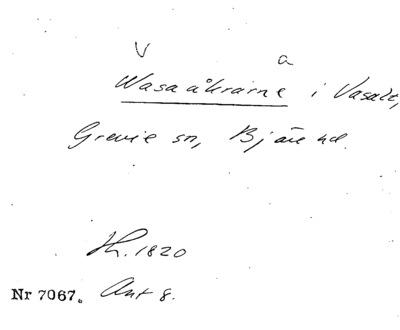 V a
Wasaåkrarne i Vasalt,
Grevie sn, Bjäre hd.
Hh. 1820
Nr 7067. Akt 8.